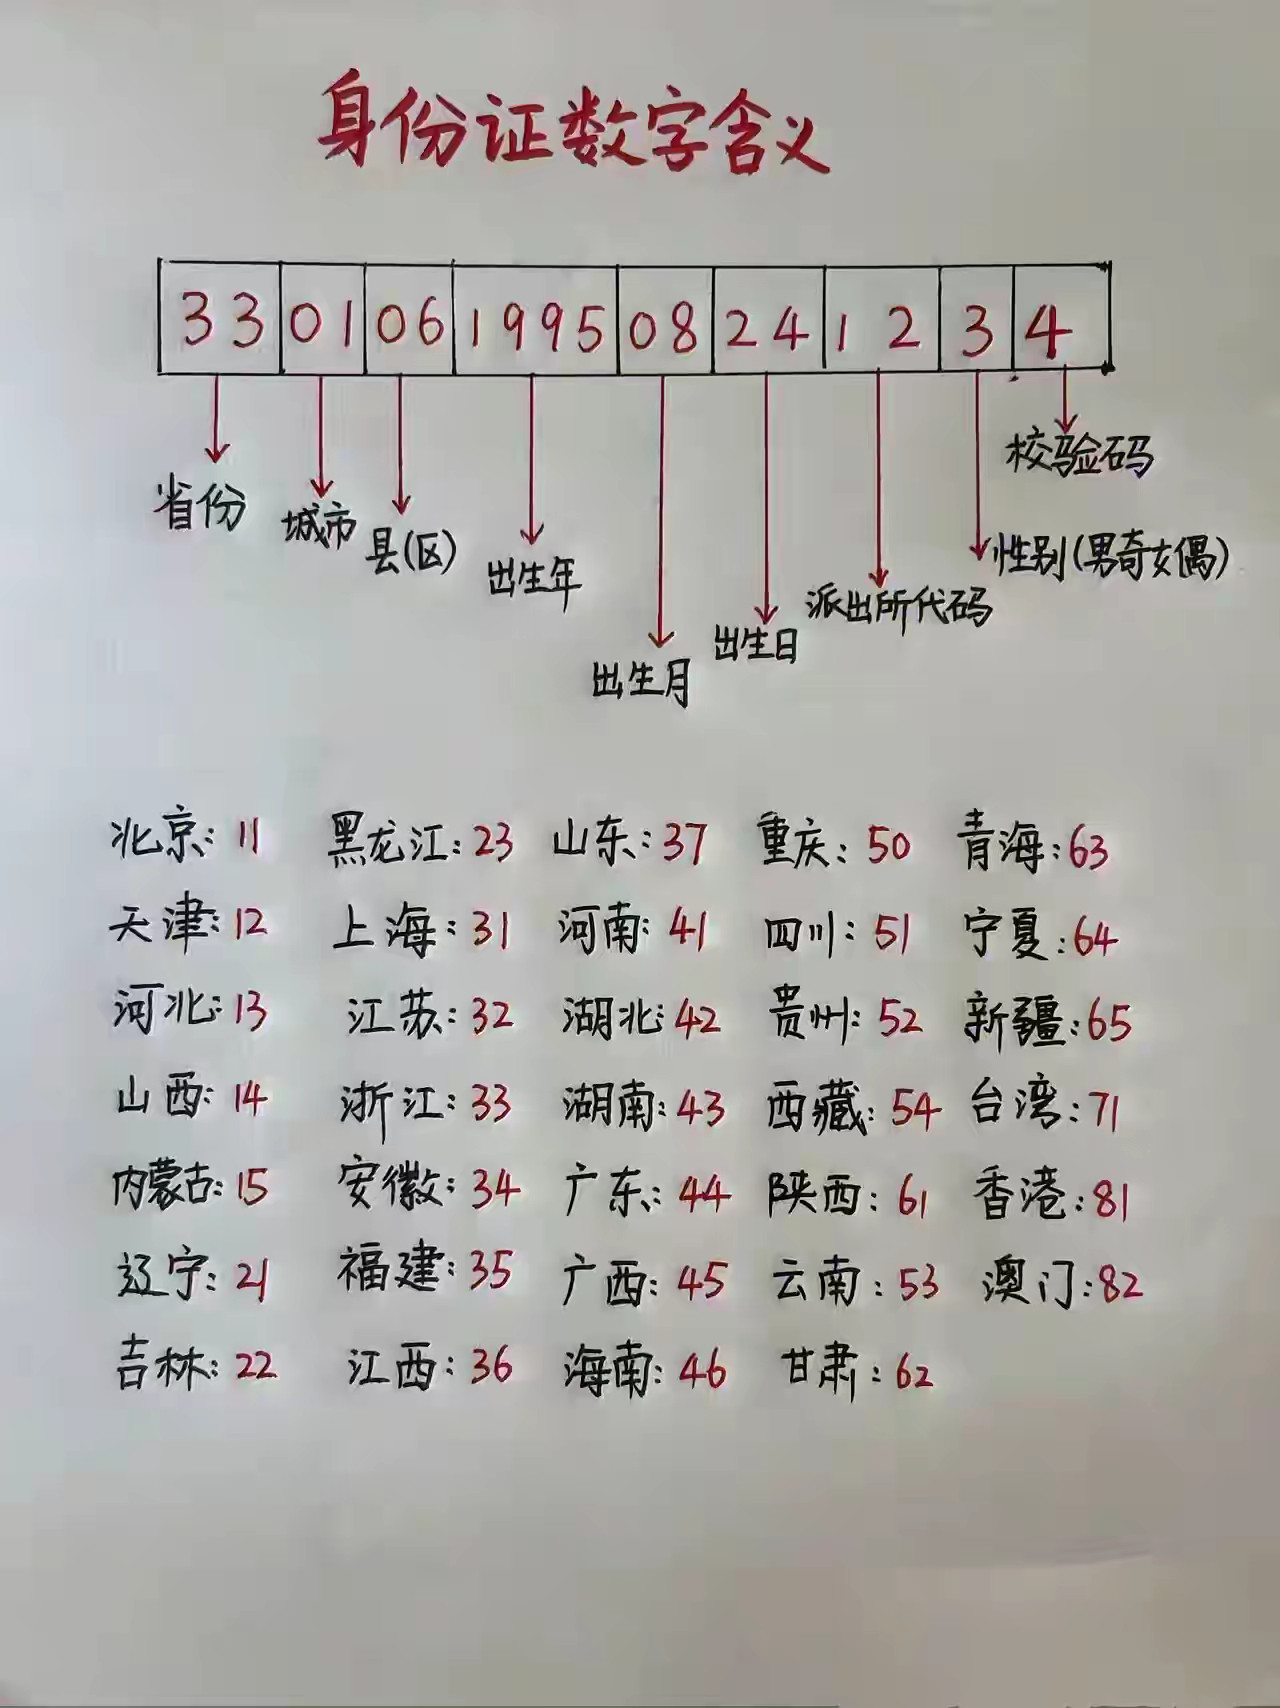 身份证数字含义
33 01 06 1995 08 24 12 3 4
省份 城市 县(区) 出生年 出生月 出生日 派出所代码 性别(男奇女偶) 校验码
北京:11 黑龙江:23 山东:37 重庆:50 青海:63
天津:12 上海:31 河南:41 四川:51 宁夏:64
河北:13 江苏:32 湖北:42 贵州:52 新疆:65
山西:14 浙江:33 湖南:43 西藏:54 台湾:71
内蒙古:15 安徽:34 广东:44 陕西:61 香港:81
辽宁:21 福建:35 广西:45 云南:53 澳门:82
吉林:22 江西:36 海南:46 甘肃:62